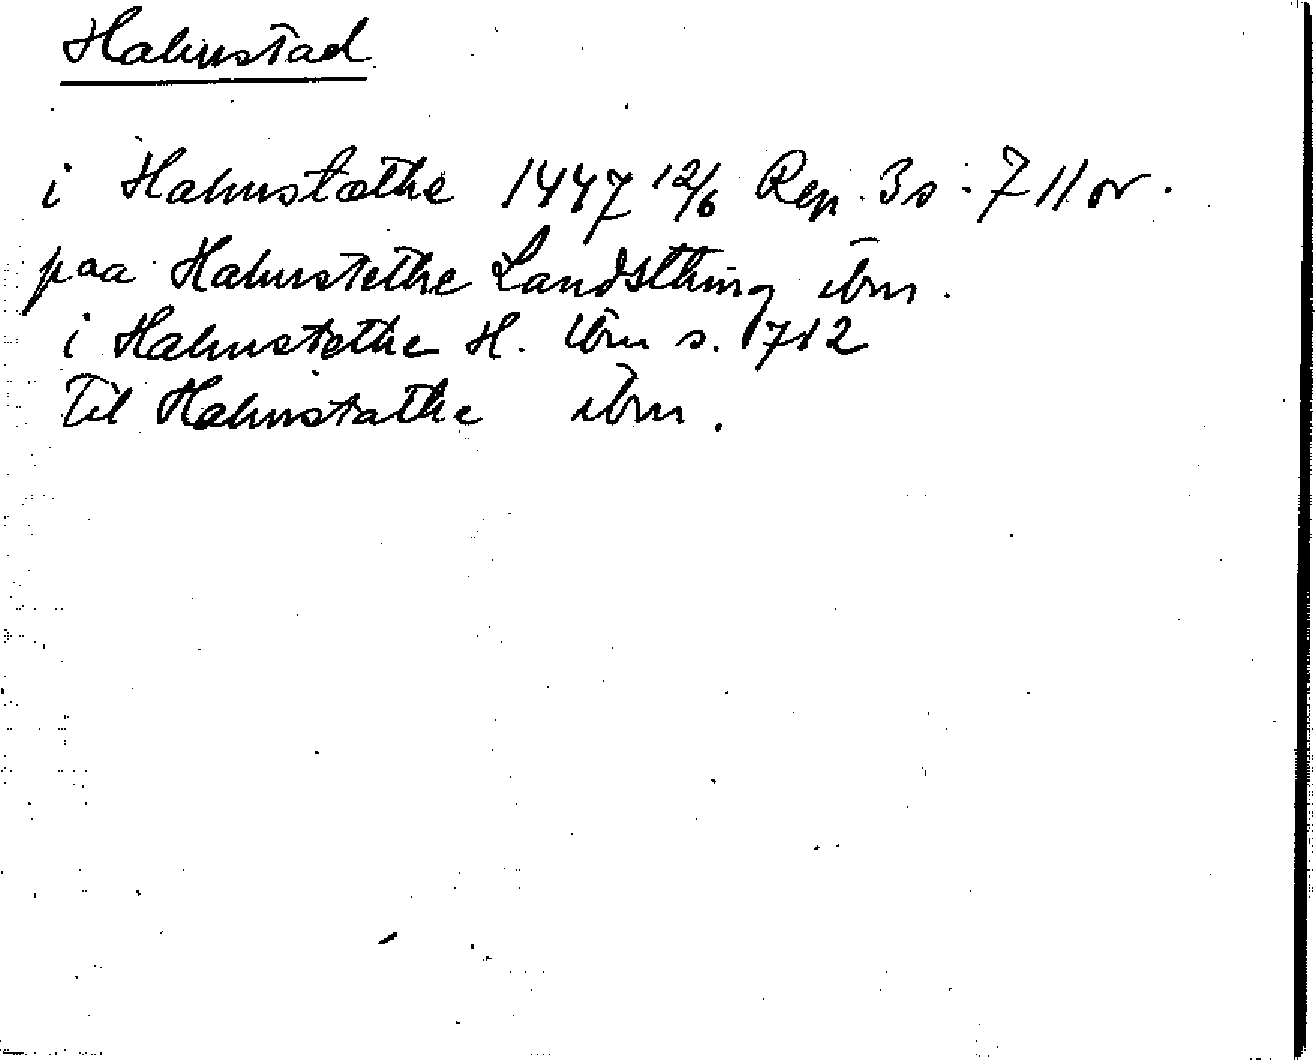 Halmstad
i Halmstæthe 1447 12/6 Rep. 3 s. 711 or.
paa Halmstethe Landsthing ibm.
i Halmstethe H. ibm s. 712
Til Halmstathe ibm.